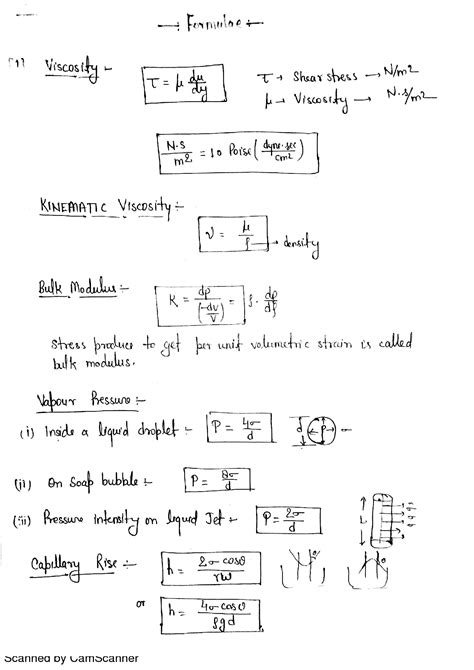 —: Formulae :—
(1) Viscosity :- τ = μ du/dy
τ → Shear stress → N/m²
μ → Viscosity → N·s/m²
N·S/m² = 10 Poise (dyne·sec/cm²)
KINEMATIC Viscosity :-
ν = μ/ρ → density
Bulk Modulus :- K = dp/(-dv/v) = ρ · dp/dρ
Stress produce to get per unit volumetric strain is called
bulk modulus.
Vapour Pressure :-
(i) Inside a liquid droplet :- P = 4σ/d d P
(ii) On Soap bubble :- P = 8σ/d
(iii) Pressure intensity on liquid Jet :- P = 2σ/d L
Capillary Rise :- h = 2σ cosθ/rw θ θ
or
h = 4σ cosθ/ρgd
Scanned by CamScanner